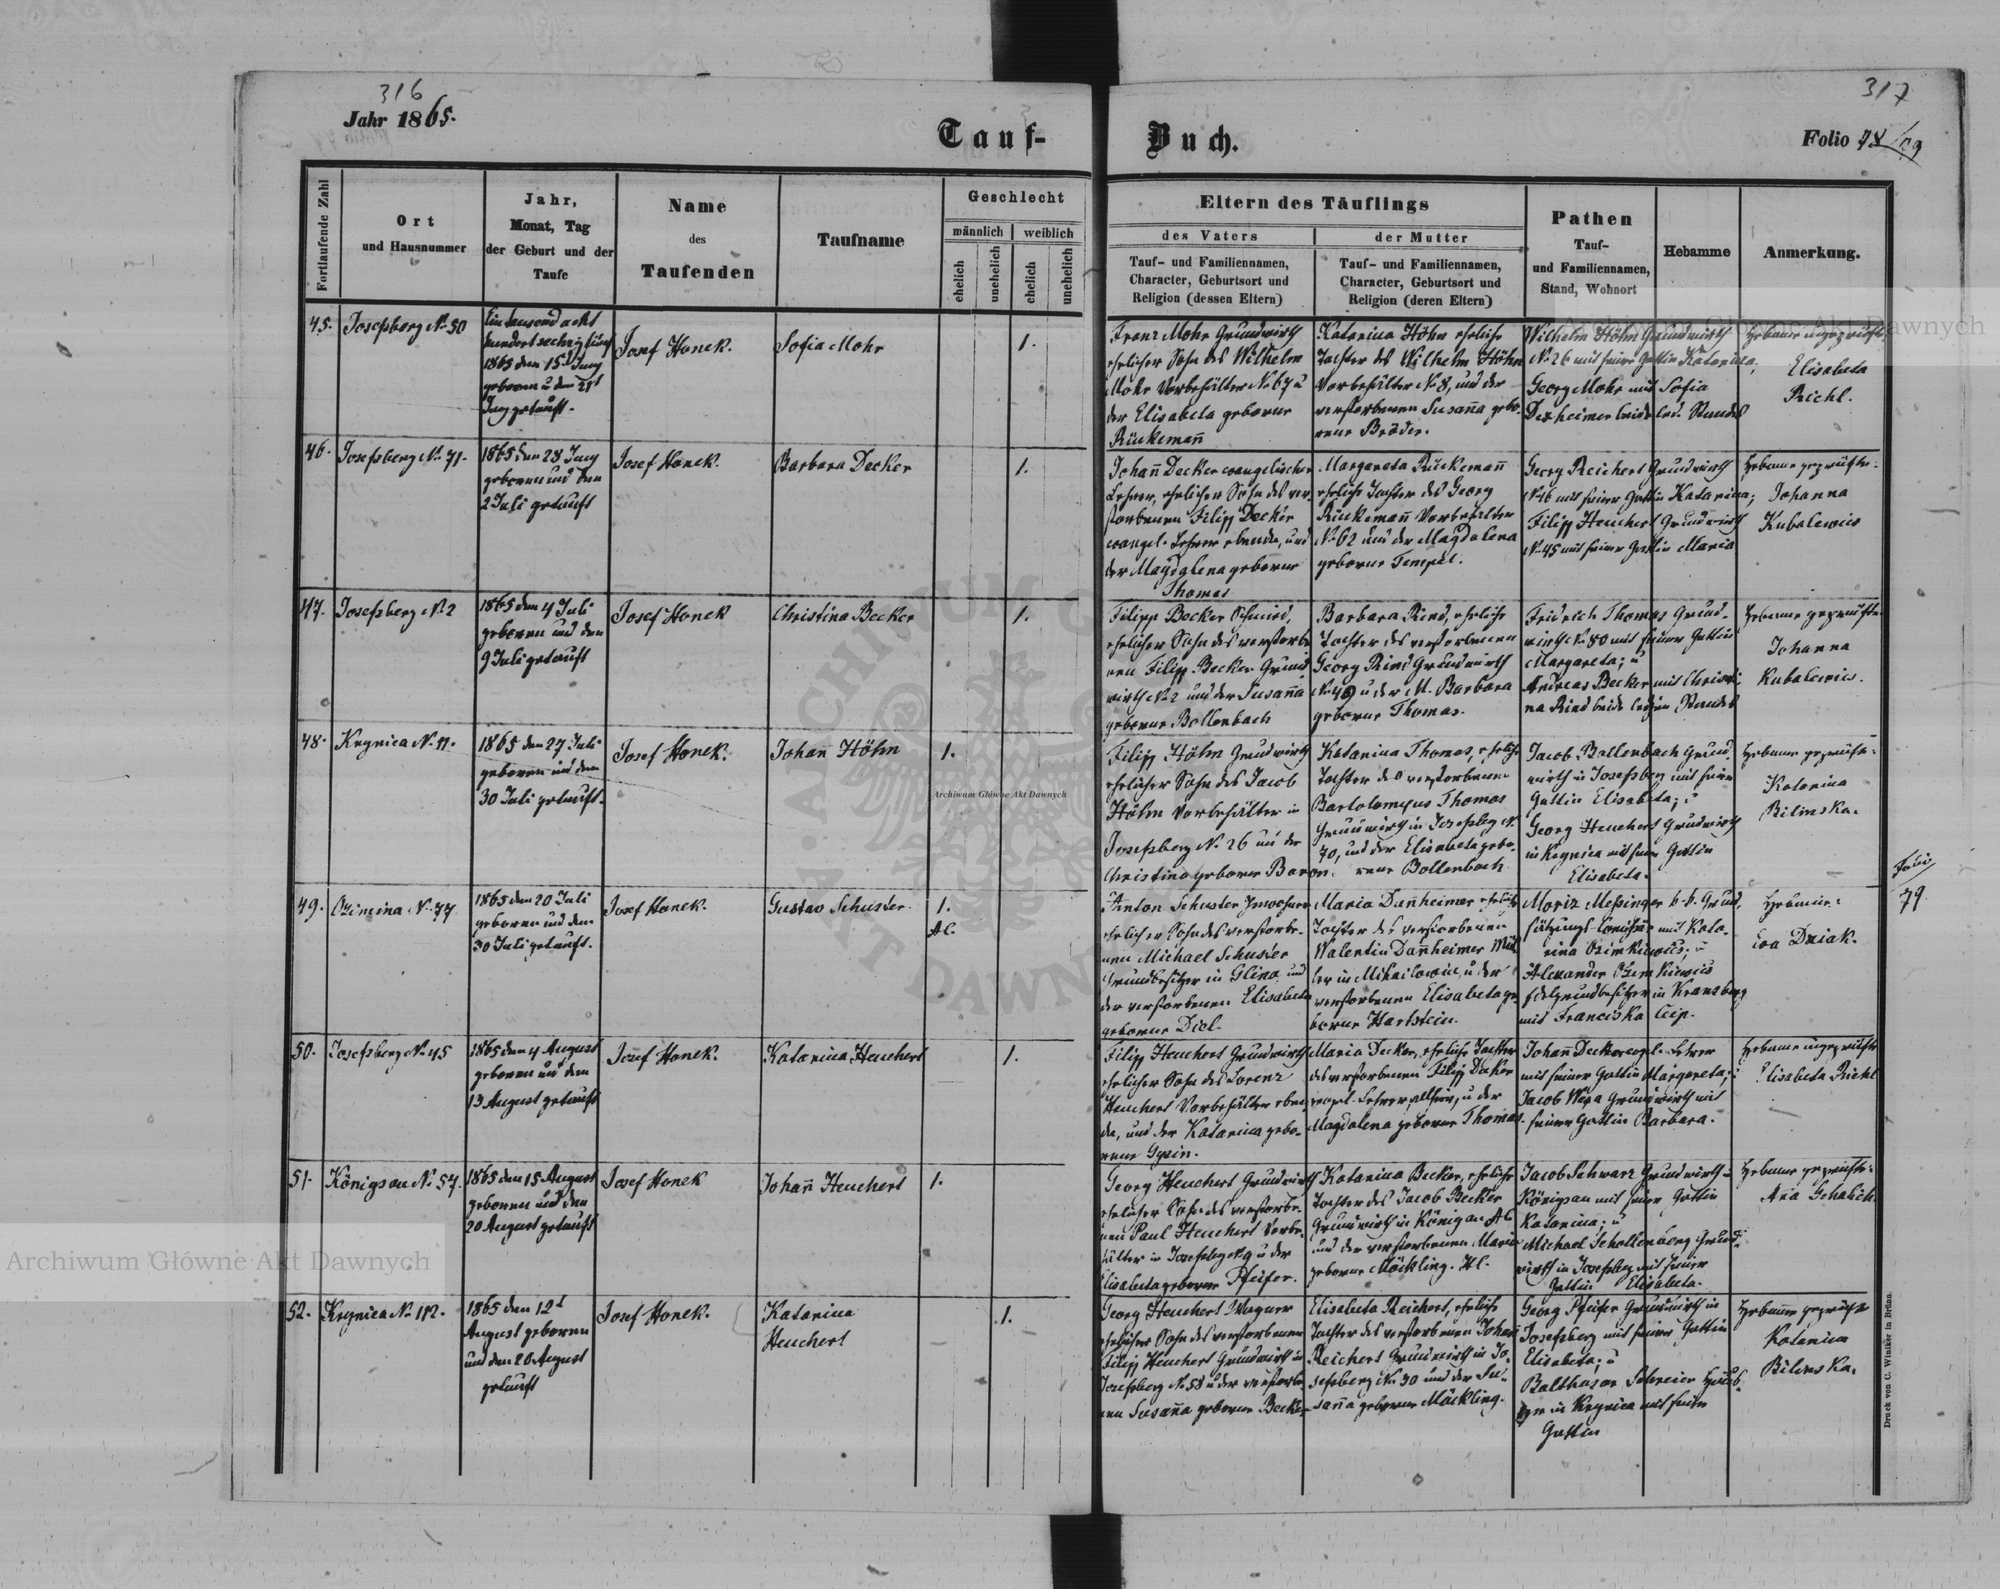 316
317
Jahr 1865.
Tauf-
Buch.
Folio 78/79
Fortlaufende Zahl
Ort
und Hausnummer
Jahr,
Monat, Tag
der Geburt und der
Taufe
Name
des
Taufenden
Taufname
Geschlecht
männlich
weiblich
ehelich
unehelich
ehelich
unehelich
Eltern des Täuflings
des Vaters
der Mutter
Tauf- und Familiennamen,
Character, Geburtsort und
Religion (dessen Eltern)
Tauf- und Familiennamen,
Character, Geburtsort und
Religion (deren Eltern)
Pathen
Tauf-
und Familiennamen,
Stand, Wohnort
Hebamme
Anmerkung.
45.
Josefsberg No 50
Ein tausend acht
hundert sechzig fünf
1865 den 15t Juny
geboren u den 21t
Juny getauft.
Josef Honek.
Sofia Mohr
1.
Franz Mohr Grundwirth
ehelicher Sohn des Wilhelm
Mohr Vorbehälter No 67 u
der Elisabeta geborne
Rückemann
Katarina Höhn eheliche
Tochter des Wilhelm Höhn
Vorbehälter No 8, und der
verstorbenen Susanna gebo-
rene Bröder.
Wilhelm Höhn Grundwirth
No 26 mit seiner Gattin Katarina,
Georg Mohr mit Sofia
Dexheimer beide led. Standes
Hebamme ungeprüfte
Elisabeta
Richl.
46.
Josefsberg No 71.
1865 den 28 Juny
geboren und den
2 Juli getauft
Josef Honek.
Barbara Decker
1.
Johann Decker evangelischer
Lehrer, ehelicher Sohn des ver-
storbenen Filipp Decker
evangel. Lehrer ebenda, und
der Magdalena geborne
Thomas
Margareta Rückemann
eheliche Tochter des Georg
Rückemann Vorbehälter
No 62 und der Magdalena
geborne Tempel.
Georg Reichert Grundwirth
No 16 mit seiner Gattin Katarina;
Filipp Heuchert Grundwirth
No 45 mit seiner Gattin Maria
Hebamme geprüfte:
Johanna
Kubalewics
47.
Josefsberg No 2
1865 den 4 Juli
geboren und den
9 Juli getauft
Josef Honek
Christina Becker
1.
Filipp Becker Schmid,
ehelicher Sohn des verstorbe
nen Filipp Becker Grund
wirth No 2 und der Susanna
geborne Bollenbach
Barbara Rind, eheliche
Tochter des verstorbenen
Georg Rind Grundwirth
No 49 u der M. Barbara
geborne Thomas.
Fridrich Thomas Grund-
wirth No 80 mit seiner Gattin
Margareta; u
Andreas Becker mit Christi-
na Rind beide ledigen Standes
Hebamme geprüfte
Johanna
Kubalewics.
48.
Krynica No 11.
1865 den 27 Juli
geboren und den
30 Juli getauft.
Josef Honek.
Johann Höhn
1.
Filipp Höhn Grundwirth
ehelicher Sohn des Jacob
Höhn Vorbehälter in
Josefsberg No 26 und der
Christina geborne Baron.
Katarina Thomas, eheliche
Tochter des verstorbenen
Bartolomeus Thomas
Grundwirth in Josefsberg No
70, und der Elisabeta gebo-
rene Bollenbach
Jacob Bollenbach Grund
wirth in Josefsberg mit seiner
Gattin Elisabeta; u
Georg Heuchert Grundwirth
in Krynica mit seiner Gattin
Elisabeta.
Hebamme geprüfte:
Katarina
Bilinska.
49.
Ozimina No 77
1865 den 20 Juli
geboren und den
30 Juli getauft.
Josef Honek.
Gustav Schuster
1.
Anton Schuster Inwohner
ehelicher Sohn des verstorbe-
nen Michael Schuster
Grundbesitzer in Glina und
der verstorbenen Elisabeta
geborne Diel.
Maria Dannheimer eheliche
Tochter des verstorbenen
Walentin Dannheimer Mül
ler in Mikailowice, u der
verstorbenen Elisabeta ge-
borne Hartstein.
Moriz Messinger
mit Kata-
rina Ozimkiewics; u
Alexander Ozimkiewics
Edelgrundbesitzer in Kransberg
mit Franciska
Hebamme:
Eva Dziak.
Folio
79
50.
Josefsberg No 45
1865 den 4 August
geboren und den
13 August getauft
Josef Honek.
Katarina Heuchert
1.
Filipp Heuchert Grundwirth
ehelicher Sohn des Lorenz
Heuchert Vorbehälter eben
da, und der Katarina gebo-
rene
Maria Decker, eheliche Tochter
des verstorbenen Filipp Decker
evangl. Lehrer allhier, u der
Magdalena geborne Thomas.
Johann Decker evangl. Lehrer
mit seiner Gattin Margareta; u
Jacob Grundwirth mit
seiner Gattin Barbara.
Hebamme ungeprüfte
Elisabeta Richl
51.
Königsau No 57.
1865 den 15 August
geboren und den
20 August getauft
Josef Honek
Johann Heuchert
1.
Georg Heuchert Grundwirth
ehelicher Sohn des verstorbe-
nen Paul Heuchert Vorbe-
hälter in Josefsberg u der
Elisabeta geborne Pfeifer.
Katarina Becker, eheliche
Tochter des Jacob Becker
Grundwirth in Königsau
und der verstorbenen Maria
geborne Möckling.
Jacob Schwarz Grundwirth in
Königsau mit seiner Gattin
Katarina; u
Michael Schollenberg Grund-
wirth in Josefsberg mit seiner
Gattin Elisabeta.
Hebamme geprüfte:
Anna Schalich
52.
Krynica No 112.
1865 den 12t
August geboren
und den 20 August
getauft
Josef Honek.
Katarina
Heuchert
1.
Georg Heuchert Wagner
ehelicher Sohn des verstorbenen
Filipp Heuchert Grundwirth in
Josefsberg No 58 u der verstorbe
nen Susanna geborne Becker
Elisabeta Reichert, eheliche
Tochter des verstorbenen Johann
Reichert Grundwirth in Jo-
sefsberg No 30 und der Su-
sanna geborne Möckling.
Georg Pfeifer Grundwirth in
Josefsberg mit seiner Gattin
Elisabeta; u
Balthasar Schreier
in Krynica mit seiner
Gattin
Hebamme geprüfte
Katarina
Bilinska.
Druck von C. Winiker in Brünn.
Archiwum Główne Akt Dawnych
Archiwum Główne Akt Dawnych
Archiwum Główne Akt Dawnych